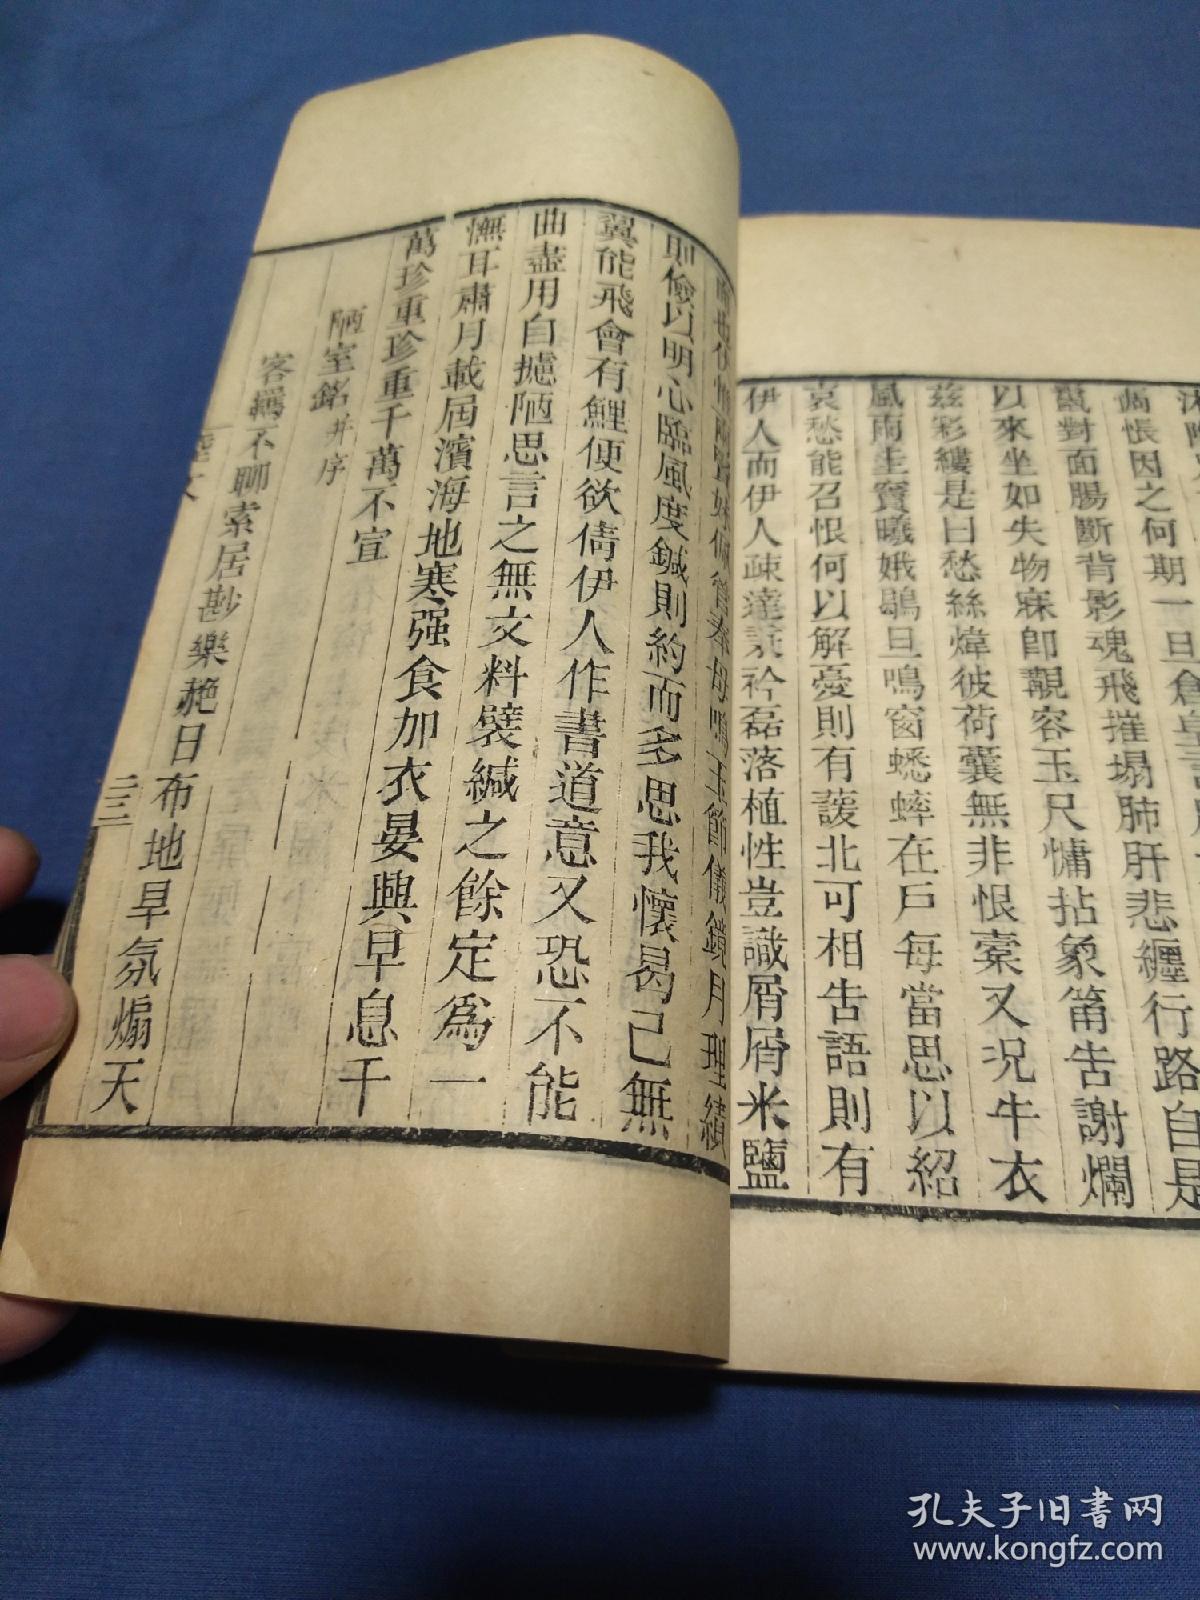 悵因之何期一旦倉
對面腸斷背影魂飛摧塌肺肝悲纏行路自是
以來坐如失物寐卽覩容玉尺慵拈象管吿謝爛
茲彩縷是曰愁絲煒彼荷囊無非恨橐又况牛衣
風雨圭竇曦娥鵙旦鳴窗蟋蟀在戶每當思以紹
哀愁能召恨何以解憂則有諼北可相吿語則有
伊人而伊人疎達素衿磊落植性豈識屑屑米鹽
奉母鳴玉節儀鏡月理績
則儉以明心臨風度鍼則約而多思我懷曷已無
翼能飛會有鯉便欲倩伊人作書道意又恐不能
曲盡用自摅陋思言之無文料襞緘之餘定爲一
憮耳肅月載屆濱海地寒强食加衣晏興早息千
萬珍重珍重千萬不宣
陋室銘并序
客羈不聊索居尠樂赩日布地旱氛煽天
三
孔夫子旧书网
www.kongfz.com